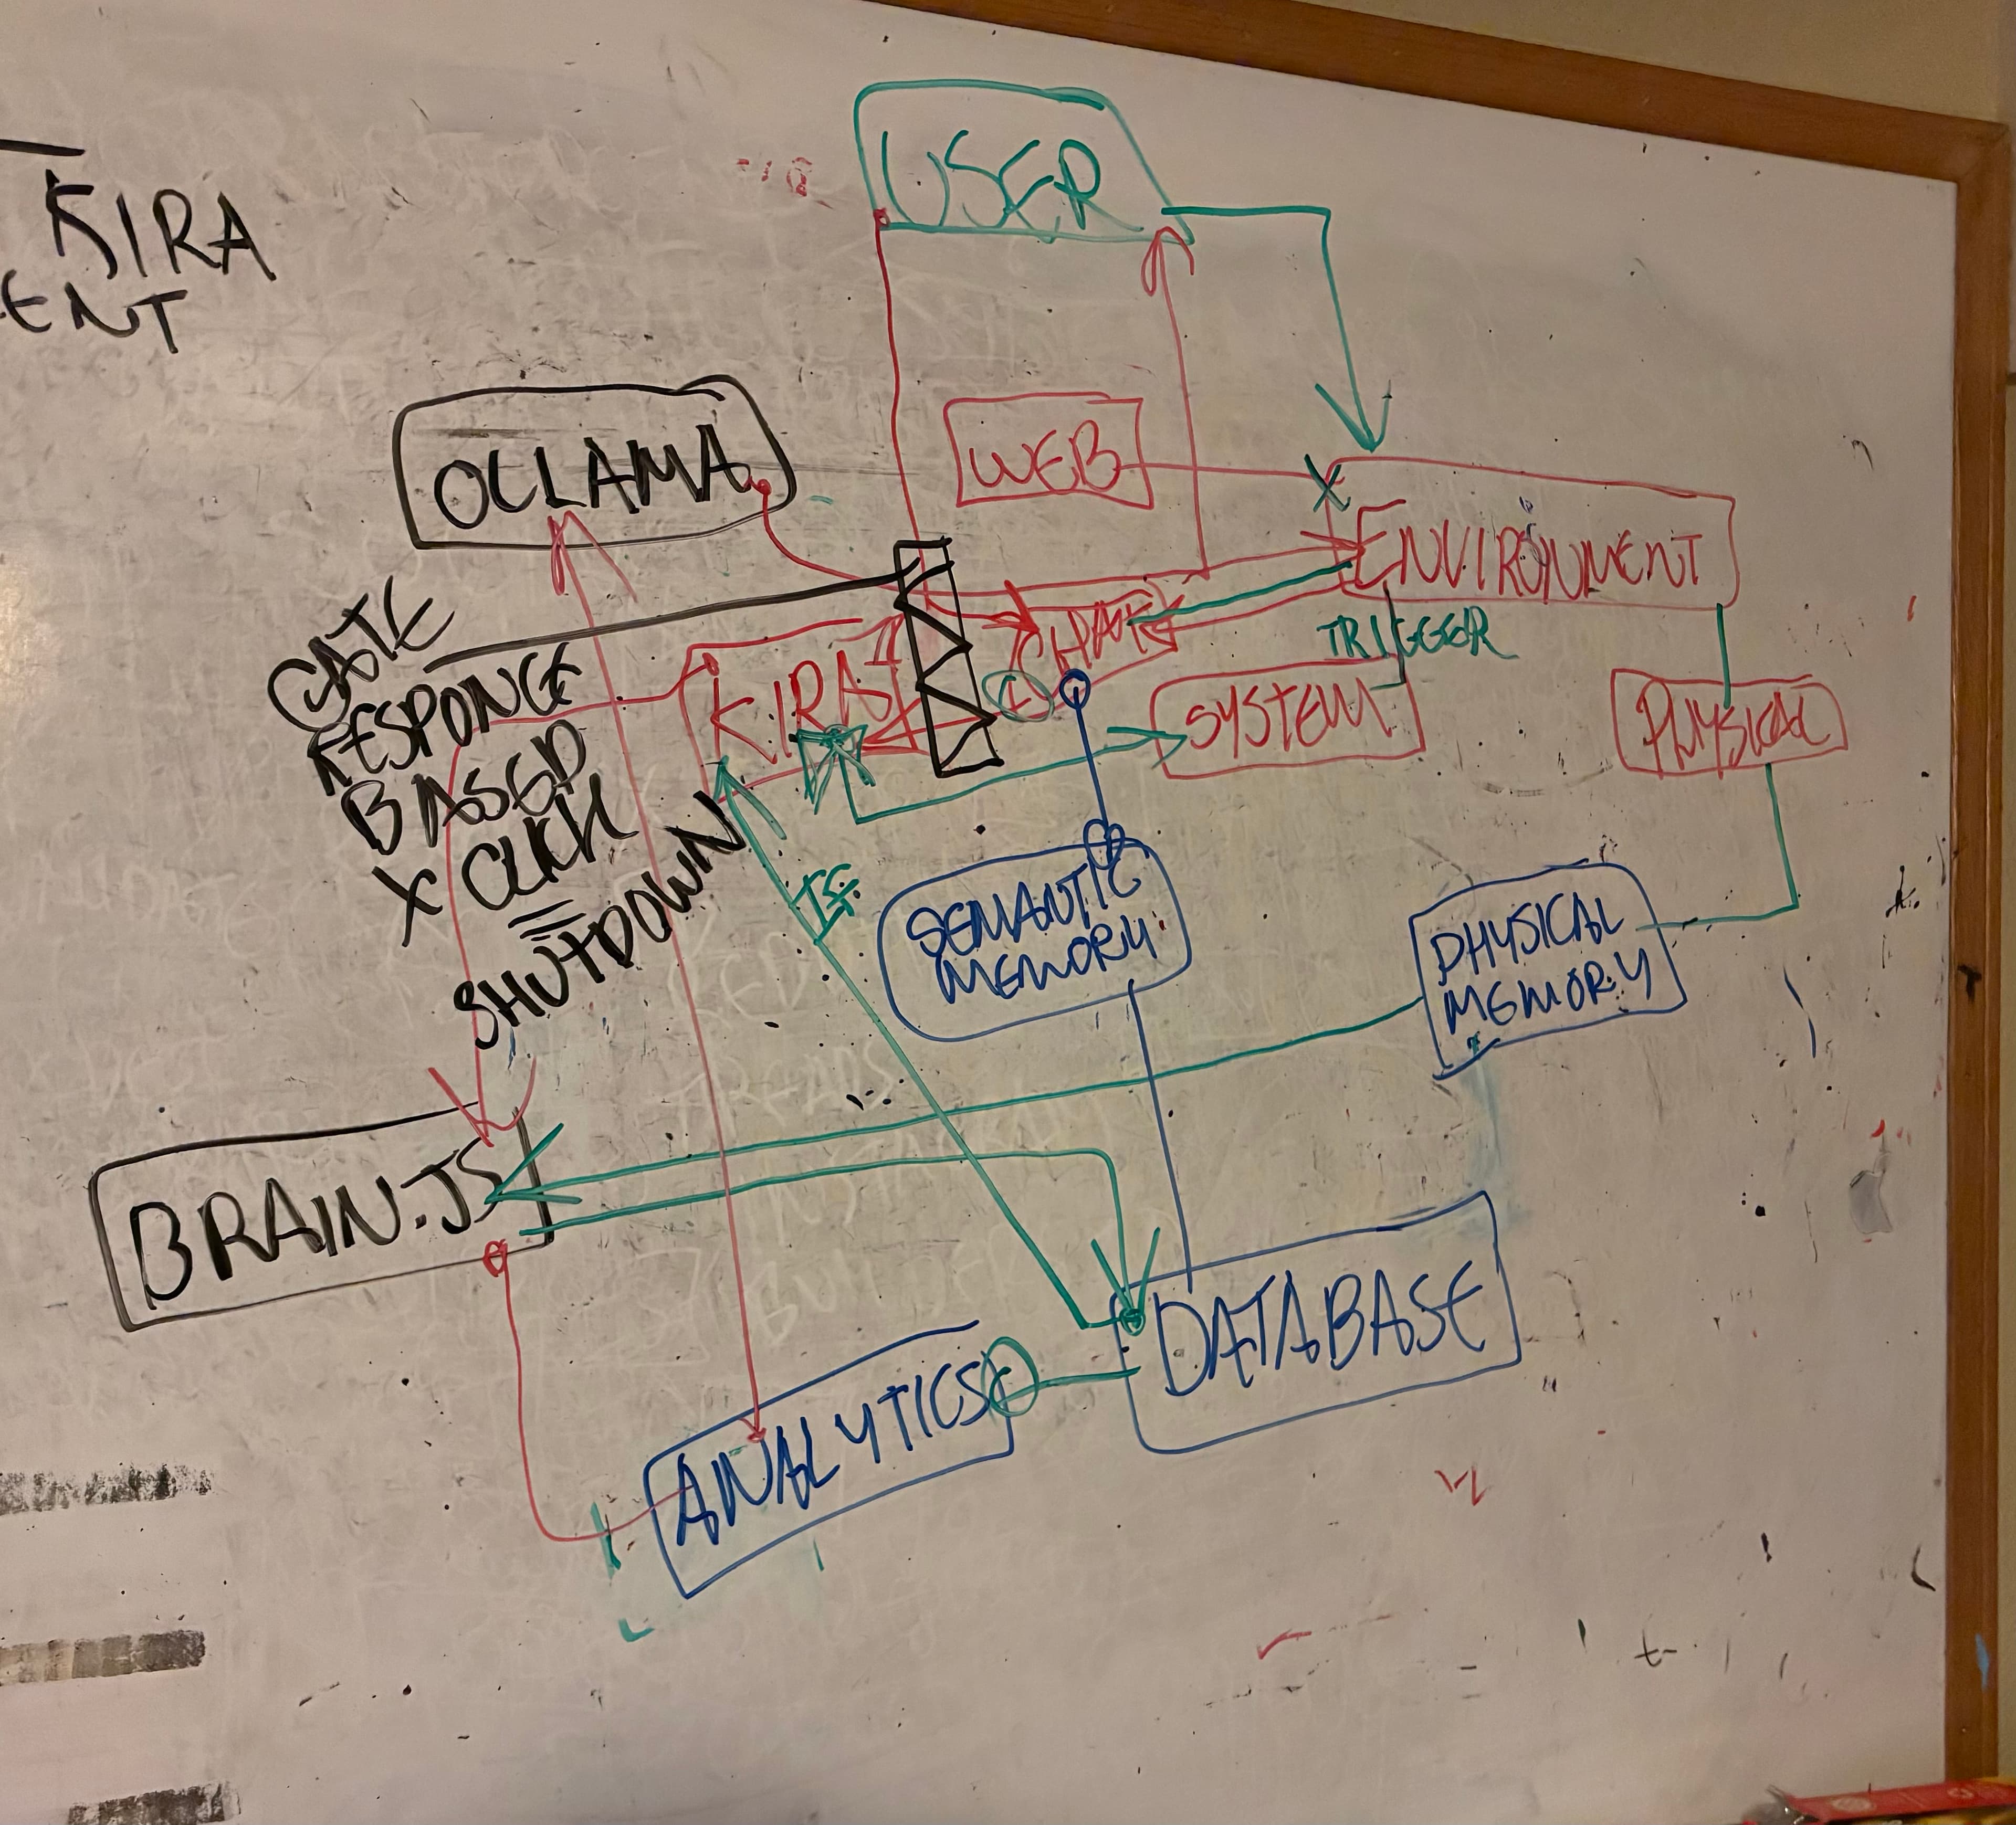 KIRA
ENT
USER
OLLAMA
WEB
ENVIRONMENT
TRIGGER
KIRA
CHAT
SYSTEM
PHYSICAL
GATE
RESPONGE
BASED
X CLICK
=
SHUTDOWN
IF:
SEMANTIC
MEMORY
PHYSICAL
MEMORY
BRAIN.JS
DATABASE
ANALYTICS